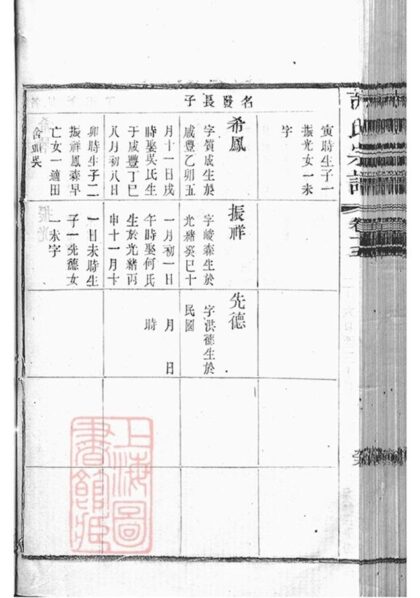 氏宗譜
卷十五
寅時生子一
振光女一未
字
名發長子
希鳳
字質成生於
咸豐乙卯五
月十一日戌
時娶吳氏生
于咸豐丁巳
八月初八日
卯時生子二
振祥鳳森早
亡女一適田
舍頭吳
振祥
字峻森生於
光緒癸巳十
一月初一日
午時娶何氏
生於光緒丙
申十一月十
一日未時生
子一先德女
一未字
先德
字洪福生於
民國
月　日
時
上海圖
書館藏